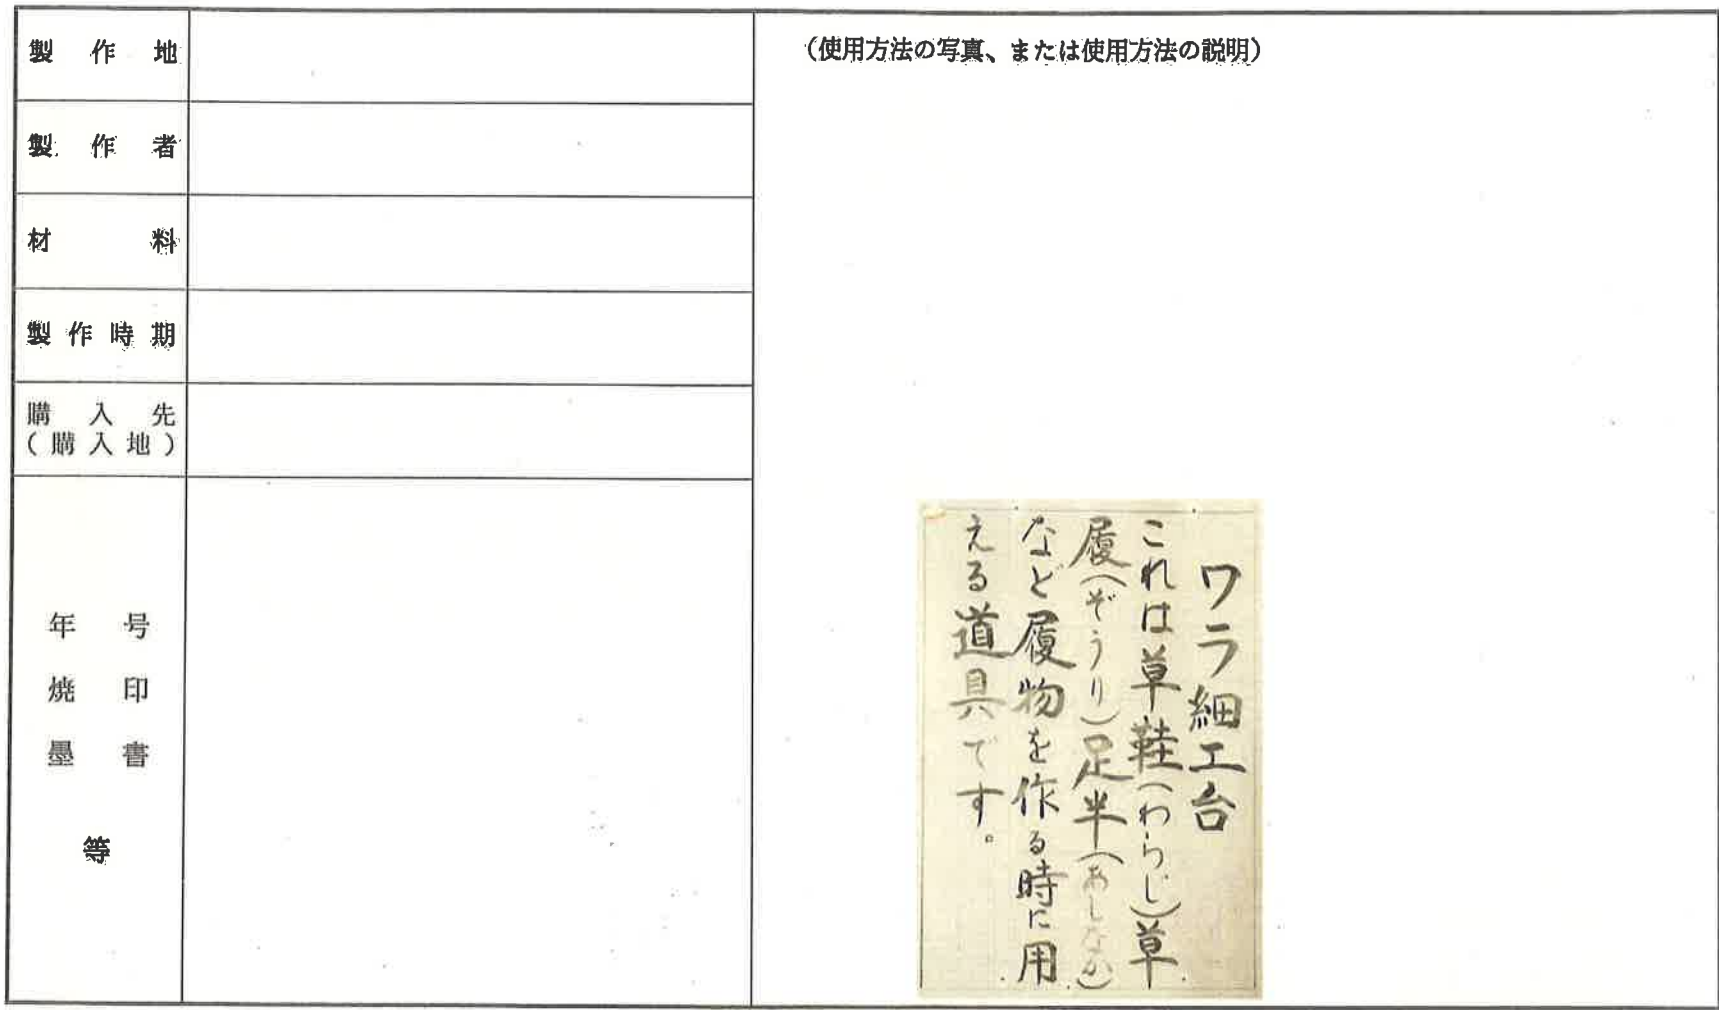 製作地
製作者
材料
製作時期
購入先
(購入地)
年号
焼印
墨書
等
(使用方法の写真、または使用方法の説明)
ワラ細工台
これは草鞋(わらじ)草
履(ぞうり)足半(あしなか)
など履物を作る時に用
える道具です。